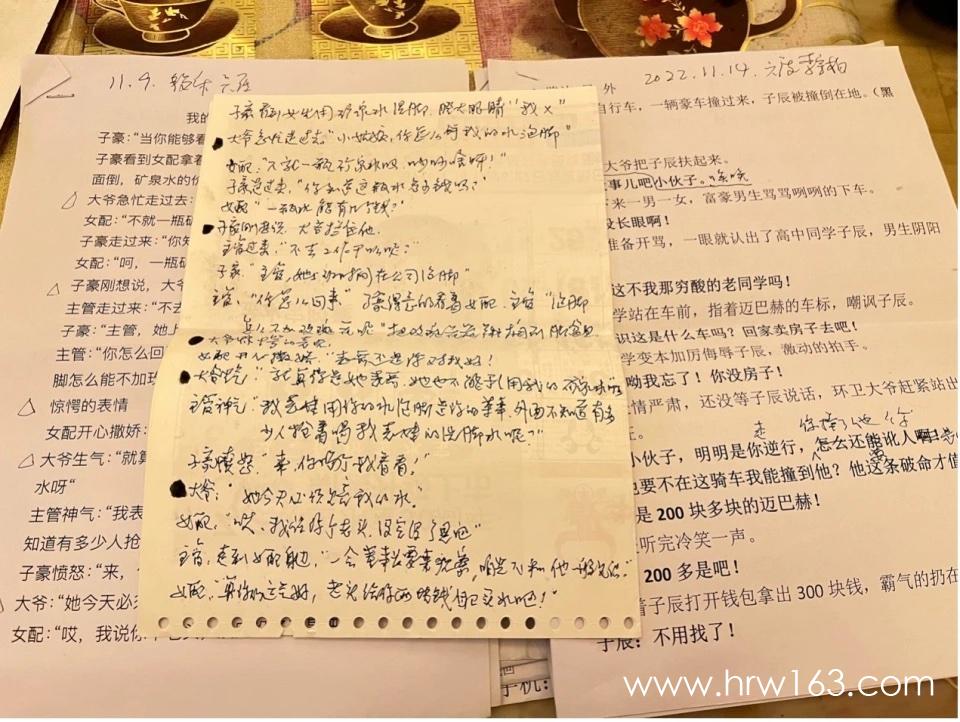 11.9.
我的
子豪:“当你能够看
子豪看到女配拿着
面倒，矿泉水的价
△ 大爷急忙走过去:
女配:“不就一瓶矿
子豪走过来:“你知
女配:“呵，一瓶矿
△ 子豪刚想说，大爷
主管走过来:“不去
子豪:“主管，她上
主管:“你怎么回
脚怎么能不加玫
△ 惊愕的表情
女配开心撒娇:
△ 大爷生气:“就算
水呀”
主管神气:“我表
知道有多少人抢
子豪愤怒:“来，
△ 大爷:“她今天必须
女配:“哎，我说你
子豪看到女生用矿泉水泡脚，瞪大眼睛“我x”
大爷急忙走过去“小姑娘，你怎么用我的水泡脚”
女配:“不就一瓶矿泉水吗，吵吵啥呀!”
子豪走过来，“你知道这瓶水多少钱吗?”
女配“一瓶水能有几个钱?”
子豪刚想说，大爷拦住他.
主管过来，“不去工作干吗呢?”
子豪“主管，她上班期间在公司泡脚”
主管:“你怎么回来” 得意的看着女配，主管“泡脚
大爷惊愕的表情
女配开心撒娇，
大爷气:“就算你是她，她也不能
主管神气“我表妹用你的水泡脚是你的荣幸，外面不知道有多
少人抢着喝我表妹的洗脚水呢?”
子豪愤怒:“来，你喝个我看看!”
大爷:“她今天必须
女配:“哎，我说你个老头，没完没了是吧”
主管，走到女配身边，“一会董事长要来视察，咱先不和他一般见识.”
女配:“算你运气好，老头给你两块钱自己买水吧!”
2022.11.14.
外
自行车，一辆豪车撞过来，子辰被撞倒在地。(黑
大爷把子辰扶起来。
事儿吧小伙子。
下来一男一女，富豪男生骂骂咧咧的下车。
没长眼啊!
准备开骂，一眼就认出了高中同学子辰，男生阴阳
这不我那穷酸的老同学吗!
学站在车前，指着迈巴赫的车标，嘲讽子辰。
识这是什么车吗?回家卖房子去吧!
学变本加厉侮辱子辰，激动的拍手。
呦我忘了!你没房子!
情严肃，还没等子辰说话，环卫大爷赶紧站出
小伙子，明明是你逆行，怎么还能讹人
也要不在这骑车我能撞到他?他这条破命才值
是 200 块多块的迈巴赫!
听完冷笑一声。
200 多是吧!
着子辰打开钱包拿出 300 块钱，霸气的扔在
子辰: 不用找了!
手机:
www.hrw163.com